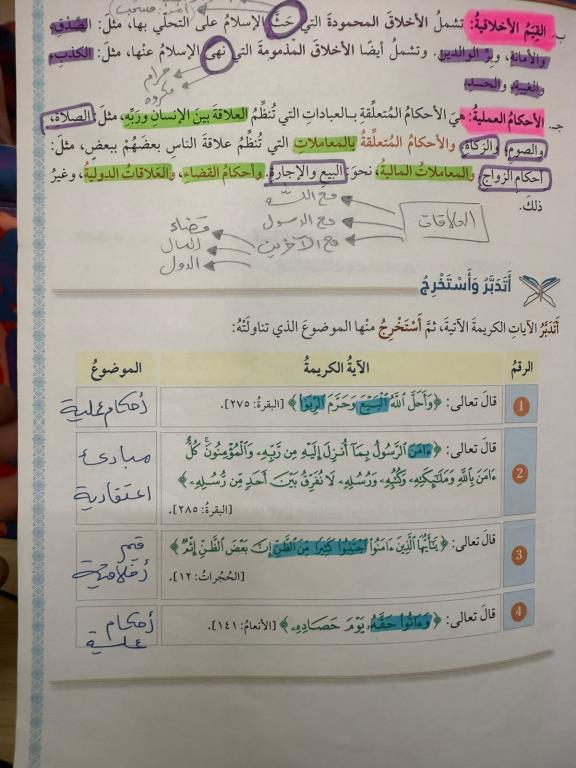 أمثلة: مستحب
ب. القِيَمُ الأخلاقيةُ: تشملُ الأخلاقَ المحمودةَ التي حَثَّ الإسلامُ على التحلّي بها، مثلَ: الصِّدْقِ،
والأمانةِ، وبِرِّ الوالدينِ. وتشملُ أيضًا الأخلاقَ المذمومةَ التي نَهى الإسلامُ عنْها، مثلَ: الكذبِ،
والغيبةِ، والحسدِ.
حرام
مكروه
جـ. الأحكامُ العمليةُ: هيَ الأحكامُ المُتعلِّقةُ بـالعباداتِ التي تُنظِّمُ العلاقةَ بينَ الإنسانِ وربِّهِ، مثلَ: الصلاةِ،
والصومِ، والزكاةِ، والأحكامُ المُتعلِّقةُ بالمعاملاتِ التي تُنظِّمُ علاقةَ الناسِ بعضِهُمْ ببعضٍ، مثلَ:
أحكامِ الزواجِ، والمعاملاتِ الماليةِ، نحوَ: البيعِ والإجارةِ، وأحكامِ القضاءِ، والعَلاقاتِ الدوليةِ، وغيرُ
ذلكَ.
العلاقات
مع الله
مع الرسول
مع الآخرين
قضاء
المال
الدول
أَتَدَبَّرُ وَأَسْتَخْرِجُ
أَتَدَبَّرُ الآياتِ الكريمةَ الآتيةَ، ثمَّ أَسْتَخْرِجُ منْها الموضوعَ الذي تناولَتْهُ:
الرقمُ الآيةُ الكريمةُ الموضوعُ
1 قالَ تعالى: ﴿وَأَحَلَّ اللَّهُ الْبَيْعَ وَحَرَّمَ الرِّبَوٰا﴾ [البقرةُ: ٢٧٥]. أحكام عملية
2 قالَ تعالى: ﴿ءَامَنَ الرَّسُولُ بِمَا أُنزِلَ إِلَيْهِ مِن رَّبِّهِ وَالْمُؤْمِنُونَ ۚ كُلٌّ
ءَامَنَ بِاللَّهِ وَمَلَٰئِكَتِهِ وَكُتُبِهِ وَرُسُلِهِ لَا نُفَرِّقُ بَيْنَ أَحَدٍ مِّن رُّسُلِهِ﴾
[البقرةُ: ٢٨٥].
مبادئ
اعتقادية
3 قالَ تعالى: ﴿يَٰأَيُّهَا الَّذِينَ ءَامَنُوا اجْتَنِبُوا كَثِيرًا مِّنَ الظَّنِّ إِنَّ بَعْضَ الظَّنِّ إِثْمٌ﴾
[الحُجُراتُ: ١٢].
قيم
أخلاقية
4 قالَ تعالى: ﴿وَءَاتُوا حَقَّهُ يَوْمَ حَصَادِهِ﴾ [الأنعامُ: ١٤١].
أحكام
عملية